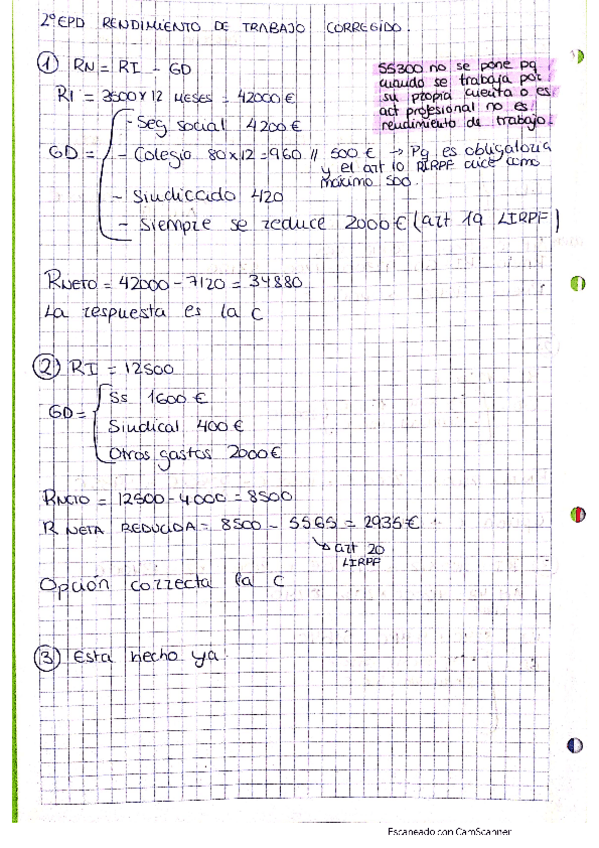 2º EPD RENDIMIENTO DE TRABAJO CORREGIDO.
① RN = RI - GD
55300 no se pone pq
cuando se trabaja por
su propia cuenta o es
act profesional no es
rendimiento de trabajo.
RI = 3500 x 12 MESES = 42000 €
GD =
- Seg social 4200 €
- Colegio 80 x 12 = 960 // 500 € → Pq es obligatoria
y el art 10 RIRPF dice como
máximo 500.
- Sindicado 420
- Siempre se reduce 2000 € (art 19 LIRPF)
RNETO = 42000 - 7120 = 34880
La respuesta es la C
② RI = 12500
GD =
SS 1600 €
Sindical 400 €
Otros gastos 2000 €
RNETO = 12500 - 4000 = 8500
R NETA REDUCIDA = 8500 - 5565 = 2935 €
↳ art 20
LIRPF
Opción correcta la C
③ Esta hecho ya
Escaneado con CamScanner